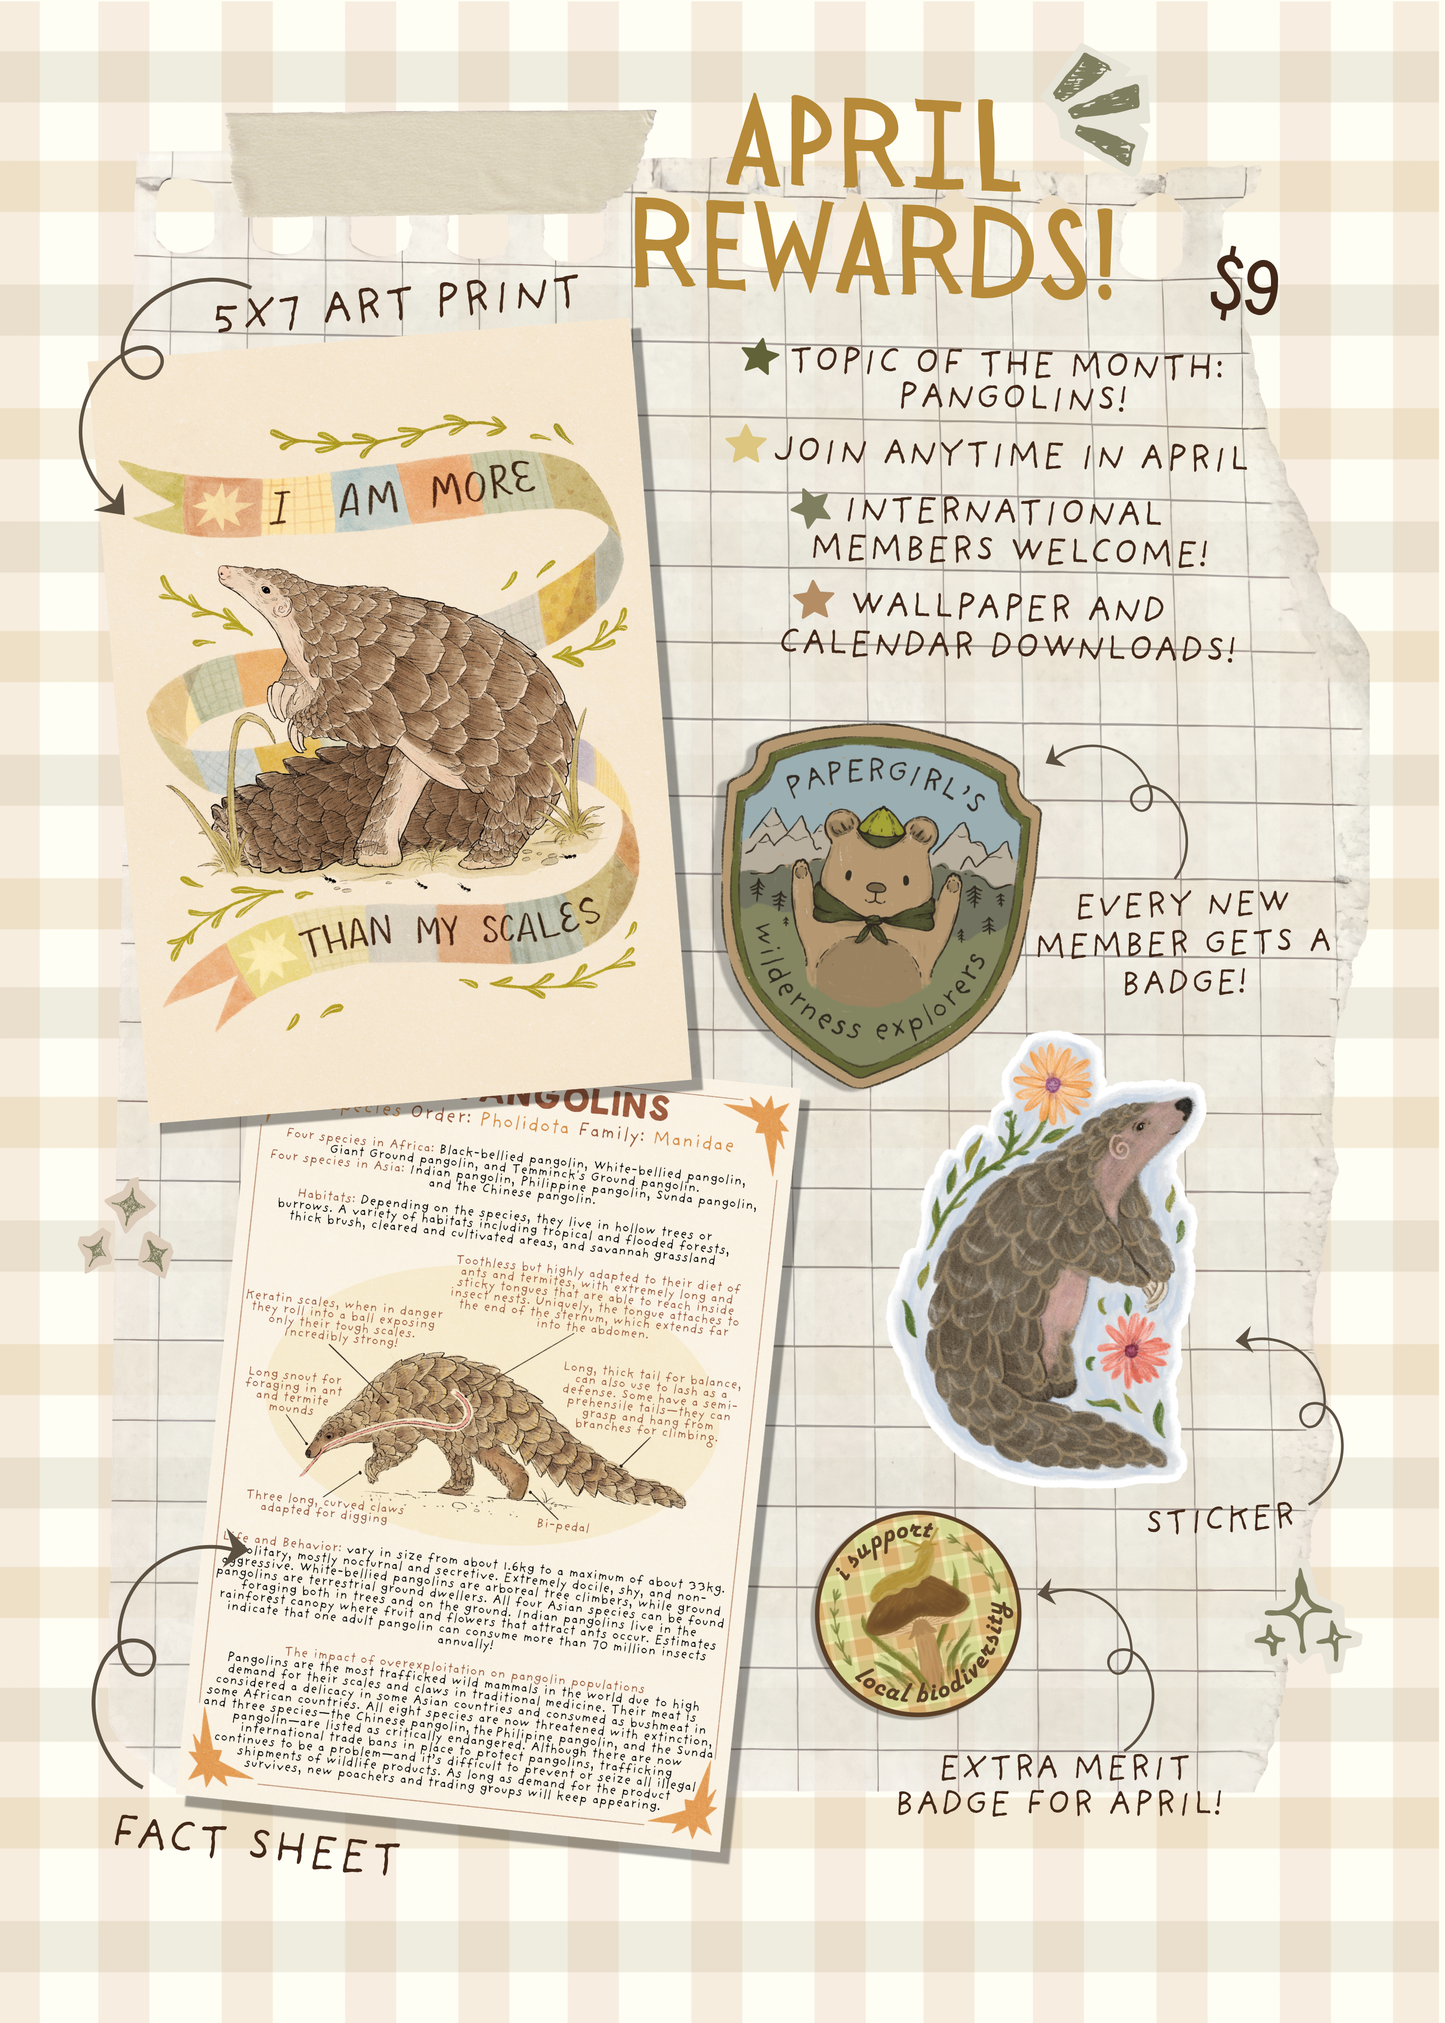 APRIL
REWARDS!
$9
5X7 ART PRINT
I AM MORE
THAN MY SCALES
TOPIC OF THE MONTH:
PANGOLINS!
JOIN ANYTIME IN APRIL
INTERNATIONAL
MEMBERS WELCOME!
WALLPAPER AND
CALENDAR DOWNLOADS!
PAPERGIRL'S
wilderness explorers
EVERY NEW
MEMBER GETS A
BADGE!
STICKER
i support
local biodiversity
EXTRA MERIT
BADGE FOR APRIL!
PANGOLINS
Species Order: Pholidota Family: Manidae
Four species in Africa: Black-bellied pangolin, White-bellied pangolin,
Giant Ground pangolin, and Temminck's Ground pangolin.
Four species in Asia: Indian pangolin, Philippine pangolin, Sunda pangolin,
and the Chinese pangolin.
Habitats: Depending on the species, they live in hollow trees or
burrows. A variety of habitats including tropical and flooded forests,
thick brush, cleared and cultivated areas, and savannah grassland
Toothless but highly adapted to their diet of
ants and termites, with extremely long and
sticky tongues that are able to reach inside
insect nests. Uniquely, the tongue attaches to
the end of the sternum, which extends far
into the abdomen.
Keratin scales, when in danger
they roll into a ball exposing
only their tough scales.
Incredibly strong!
Long snout for
foraging in ant
and termite
mounds
Long, thick tail for balance,
can also use to lash as a
defense. Some have a semi-
prehensile tails—they can
grasp and hang from
branches for climbing.
Three long, curved claws
adapted for digging
Bi-pedal
Life and Behavior: vary in size from about 1.6kg to a maximum of about 33kg.
Solitary, mostly nocturnal and secretive. Extremely docile, shy, and non-
aggressive. White-bellied pangolins are arboreal tree climbers, while ground
pangolins are terrestrial ground dwellers. All four Asian species can be found
foraging both in trees and on the ground. Indian pangolins live in the
rainforest canopy where fruit and flowers that attract ants occur. Estimates
indicate that one adult pangolin can consume more than 70 million insects
annually!
The impact of overexploitation on pangolin populations
Pangolins are the most trafficked wild mammals in the world due to high
demand for their scales and claws in traditional medicine. Their meat is
considered a delicacy in some Asian countries and consumed as bushmeat in
some African countries. All eight species are now threatened with extinction,
and three species—the Chinese pangolin, the Philipine pangolin, and the Sunda
pangolin—are listed as critically endangered. Although there are now
international trade bans in place to protect pangolins, trafficking
continues to be a problem—and it's difficult to prevent or seize all illegal
shipments of wildlife products. As long as demand for the product
survives, new poachers and trading groups will keep appearing.
FACT SHEET